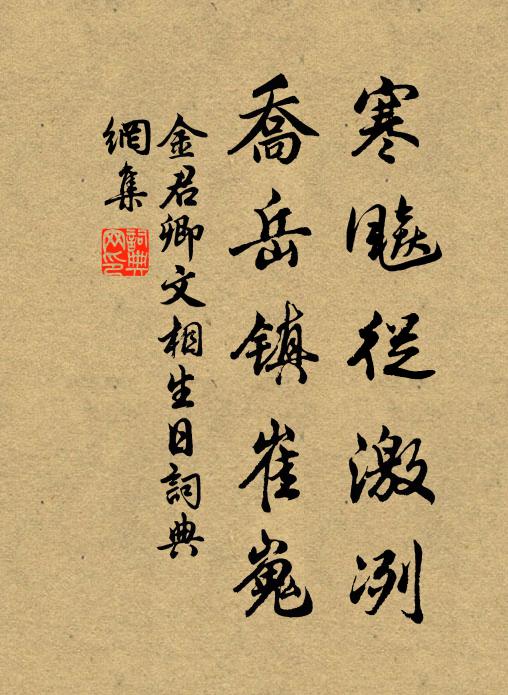 寒飈従激冽
喬岳镇崔嵬
金君卿文相生日詞典
網集
詞典
网印